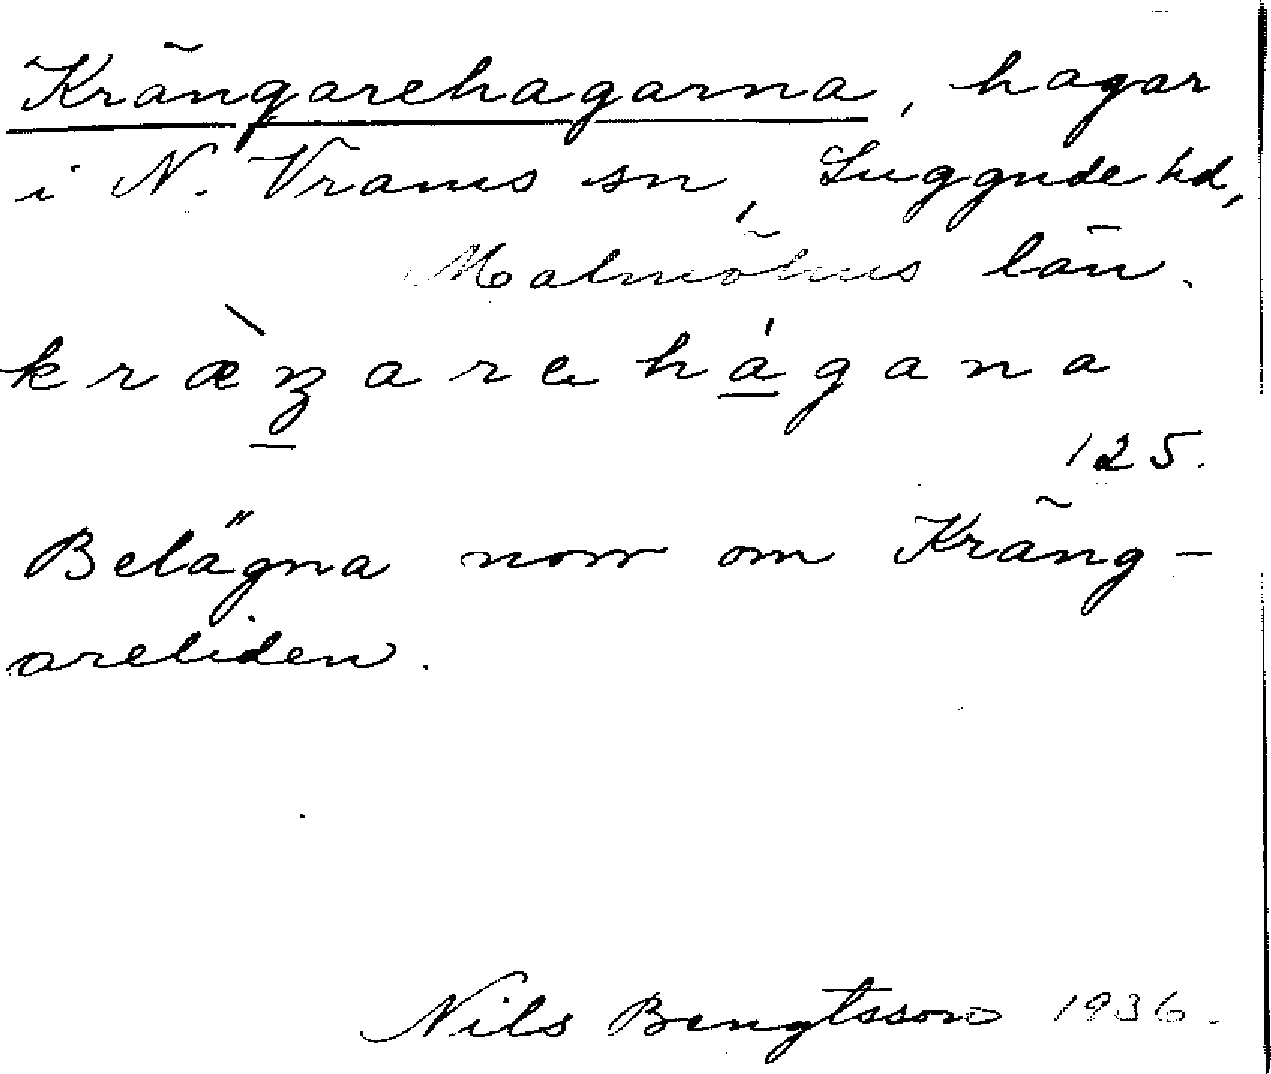 Krängarehagarna, hagar
i N. Vrams sn, Luggude hd,
Malmöhus län.
kræ̀ŋarehágana
125.
Belägna norr om Kräng-
areliden.
Nils Bengtsson 1936.